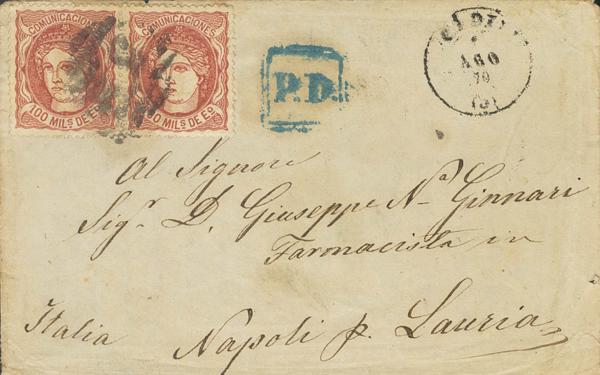 COMUNICACIONES COMUNICACIONES
100 MILS DE Eo 100 MILS DE Eo
P.D.
CADIZ
AGO
70
(3)
Al Signore
Sigr D. Giuseppe Na Ginnari
Farmacista in
Italia Napoli p. Lauria